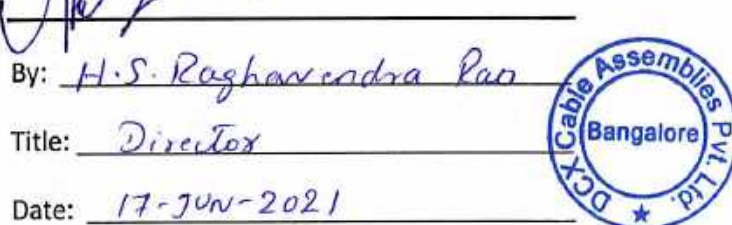 By: H.S. Raghavendra Rao
Title: Director
Date: 17-JUN-2021
DCX Cable Assemblies Pvt. Ltd.
Bangalore